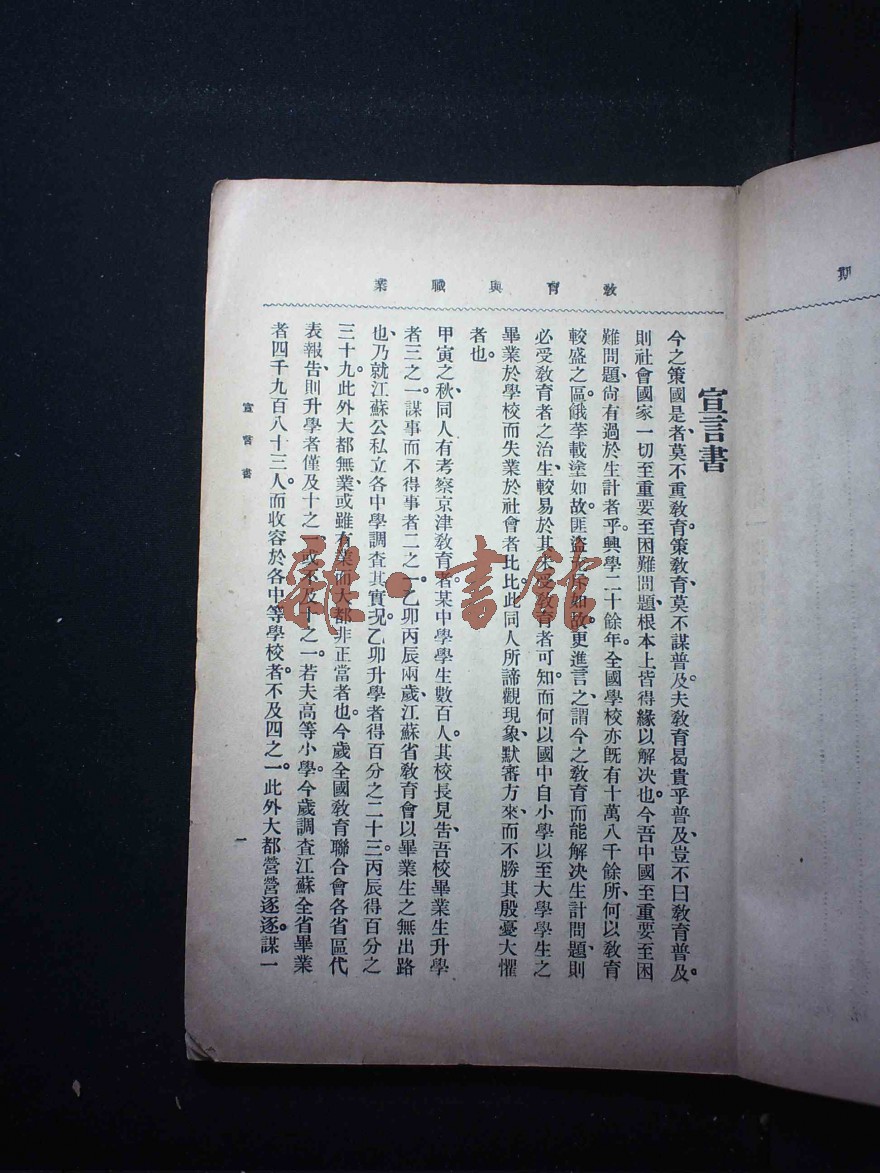 期
教育與職業
宣言書
今之策國是者、莫不重教育。策教育、莫不謀普及。夫教育曷貴乎普及、豈不曰教育普及。
則社會國家一切至重要至困難問題、根本上皆得緣以解决也。今吾中國至重要至困
難問題、尙有過於生計者乎。興學二十餘年。全國學校亦旣有十萬八千餘所、何以教育
較盛之區。餓莩載塗如故。匪盜充斥如故。更進言之、謂今之教育而能解决生計問題、則
必受教育者之治生、較易於其未受教育者可知。而何以國中自小學以至大學學生之
畢業於學校而失業於社會者比比。此同人所諦觀現象、默審方來、而不勝其殷憂大懼
者也。
甲寅之秋、同人有考察京津教育者。某中學學生數百人。其校長見告、吾校畢業生升學
者三之一。謀事而不得事者二之一。乙卯丙辰兩歲、江蘇省教育會以畢業生之無出路
也、乃就江蘇公私立各中學調查其實况。乙卯升學者得百分之二十三。丙辰得百分之
三十九。此外大都無業、或雖有業而大都非正當者也。今歲全國教育聯合會各省區代
表報告、則升學者僅及十之一或不及十之一。若夫高等小學。今歲調查江蘇全省畢業
者四千九百八十三人。而收容於各中等學校者。不及四之一。此外大都營營逐逐。謀一
宣言書
一
雜·書館